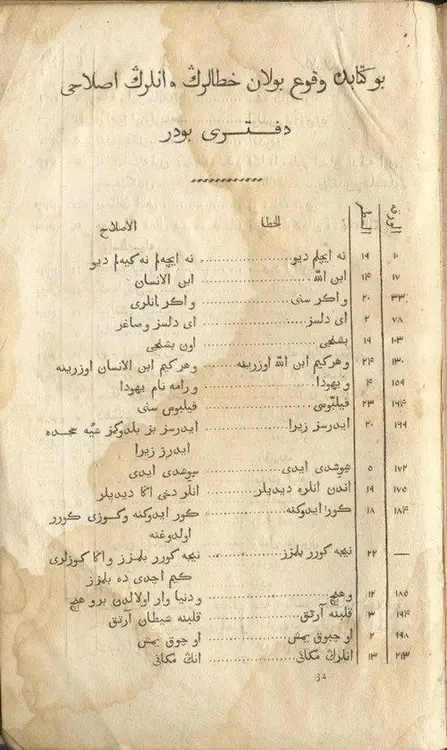 بو كتابده وقوع بولان خطالرڭ و انلرڭ اصلاحى
دفترى بودر
الورقه السطر الخطا الاصلاح
١٠ ١٩ نه ایچلم دیو نه ایچه‌لم نه كیه‌لم دیو
١٧ ١۴ ابن اللّه ابن الانسان
٣٣ ٢٠ و اكر سنى و اكر انلرى
٧٨ ٢ اى دلسز اى دلسز و صاغر
١٠٣ ١٩ بشنجى اون بشنجى
١٣٠ ٢۴ و هركیم ابن اللّه اوزرینه و هركیم ابن الانسان اوزرینه
١۵٩ ۴ و یهودا و رامه نام یهودا
١٦۴ ٢٣ فیلبّوسى فیلبوس سنى
١٦٩ ٢٠ ایدرسز زیرا ایدرسز بز بلدوكمز شیّه سجده
ایدرز زیرا
١٧٢ ۵ سوشدى ایدى
١٧۵ ١٩ اندن انلره دیدیلر انلر دخى اكا دیدیلر
١٨۴ ١٨ كور ایدوكنه كور ایدوكنه و كوزى كورر
اولدوغنه
— ٢٢ نیچه كورر بلمزز نیچه كورر بلمزز و اكا كوزلرى
كیم اچدى ده بلمزز
١٨۵ ١٢ و هیچ و دنیا وار اولالدن برو هیچ
١٩۴ ٣ قلبنه آرتق قلبنه شیطان آرتق
١٩٨ ٢ او چیوق یمش او چوق یمش
٢١٣ ١٣ انلرڭ مكانى انڭ مكانى